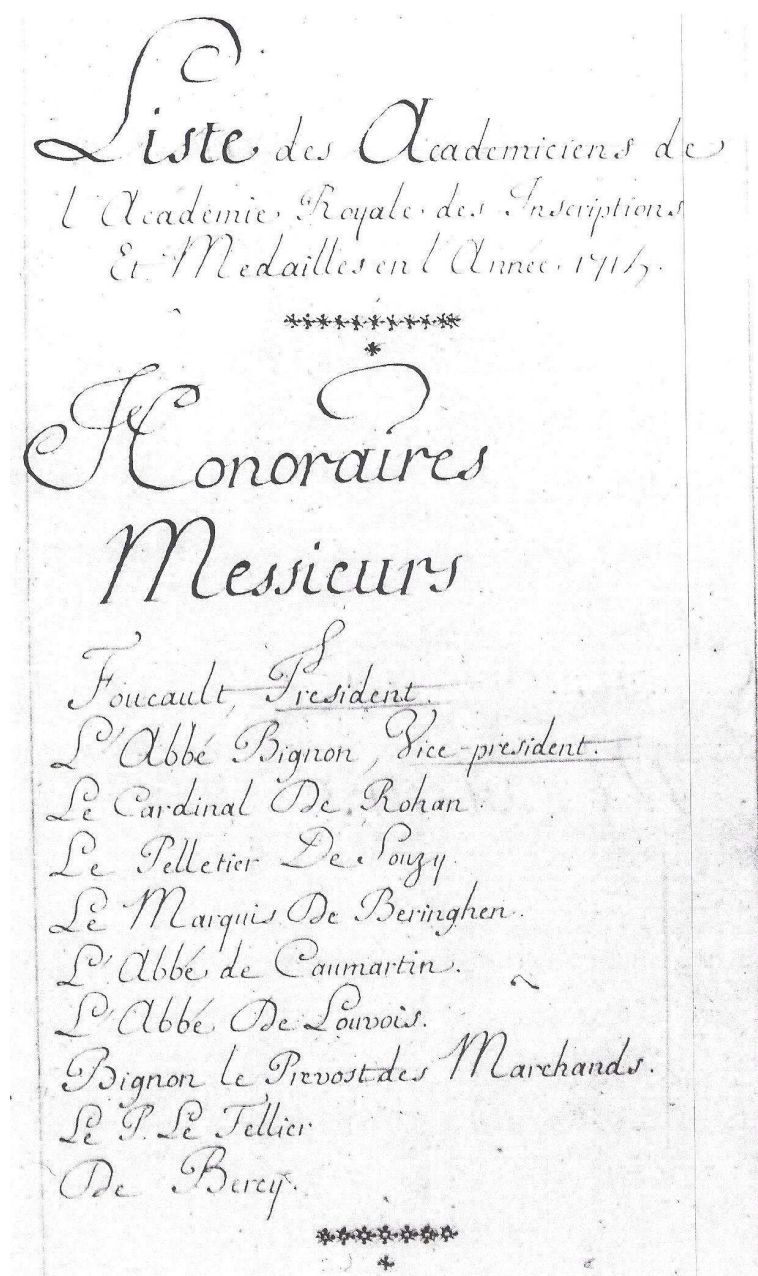 Liste des Academiciens de
l'Academie Royale des Inscriptions
Et Medailles en l'Année 1714.
Honoraires
Messieurs
Foucault, President.
L'Abbé Bignon, Vice-president.
Le Cardinal De Rohan.
Le Pelletier De Souzy.
Le Marquis De Beringhen.
L'Abbé de Caumartin.
L'Abbé De Louvois.
Bignon le Prevost des Marchands.
Le P. Le Tellier
De Bercy.